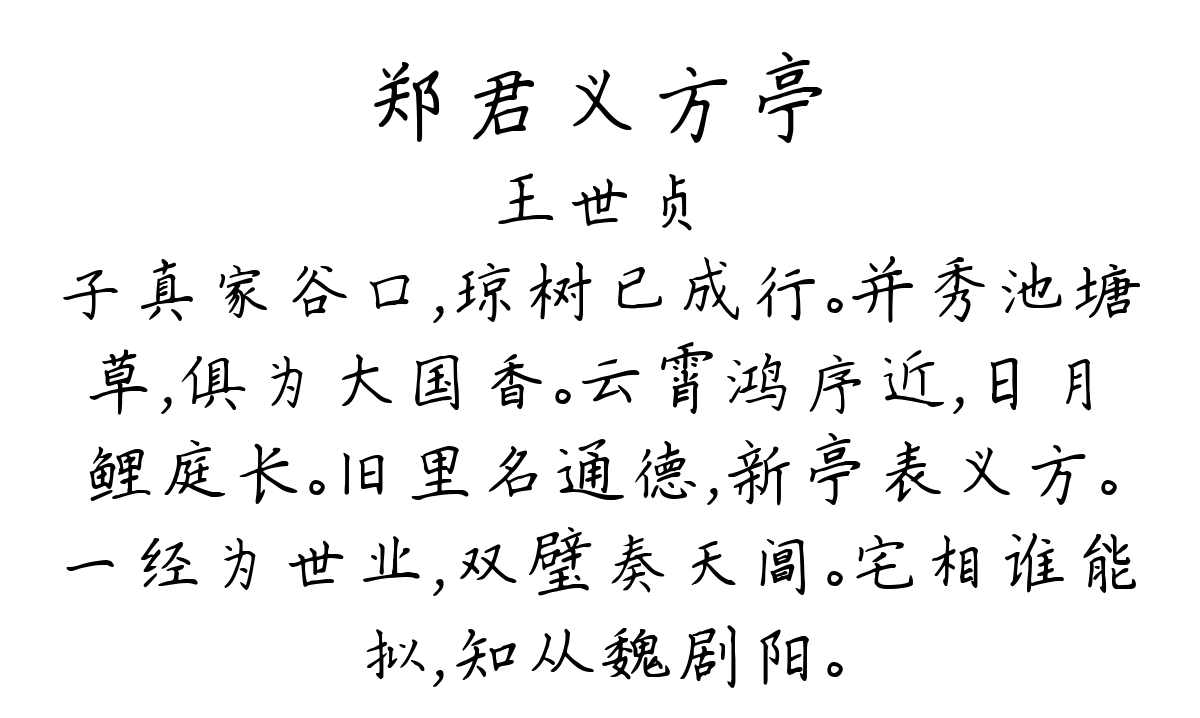 郑君义方亭
王世贞
子真家谷口,琼树已成行。并秀池塘
草,俱为大国香。云霄鸿序近,日月
鲤庭长。旧里名通德,新亭表义方。
一经为世业,双璧奏天阊。宅相谁能
拟,知从魏剧阳。